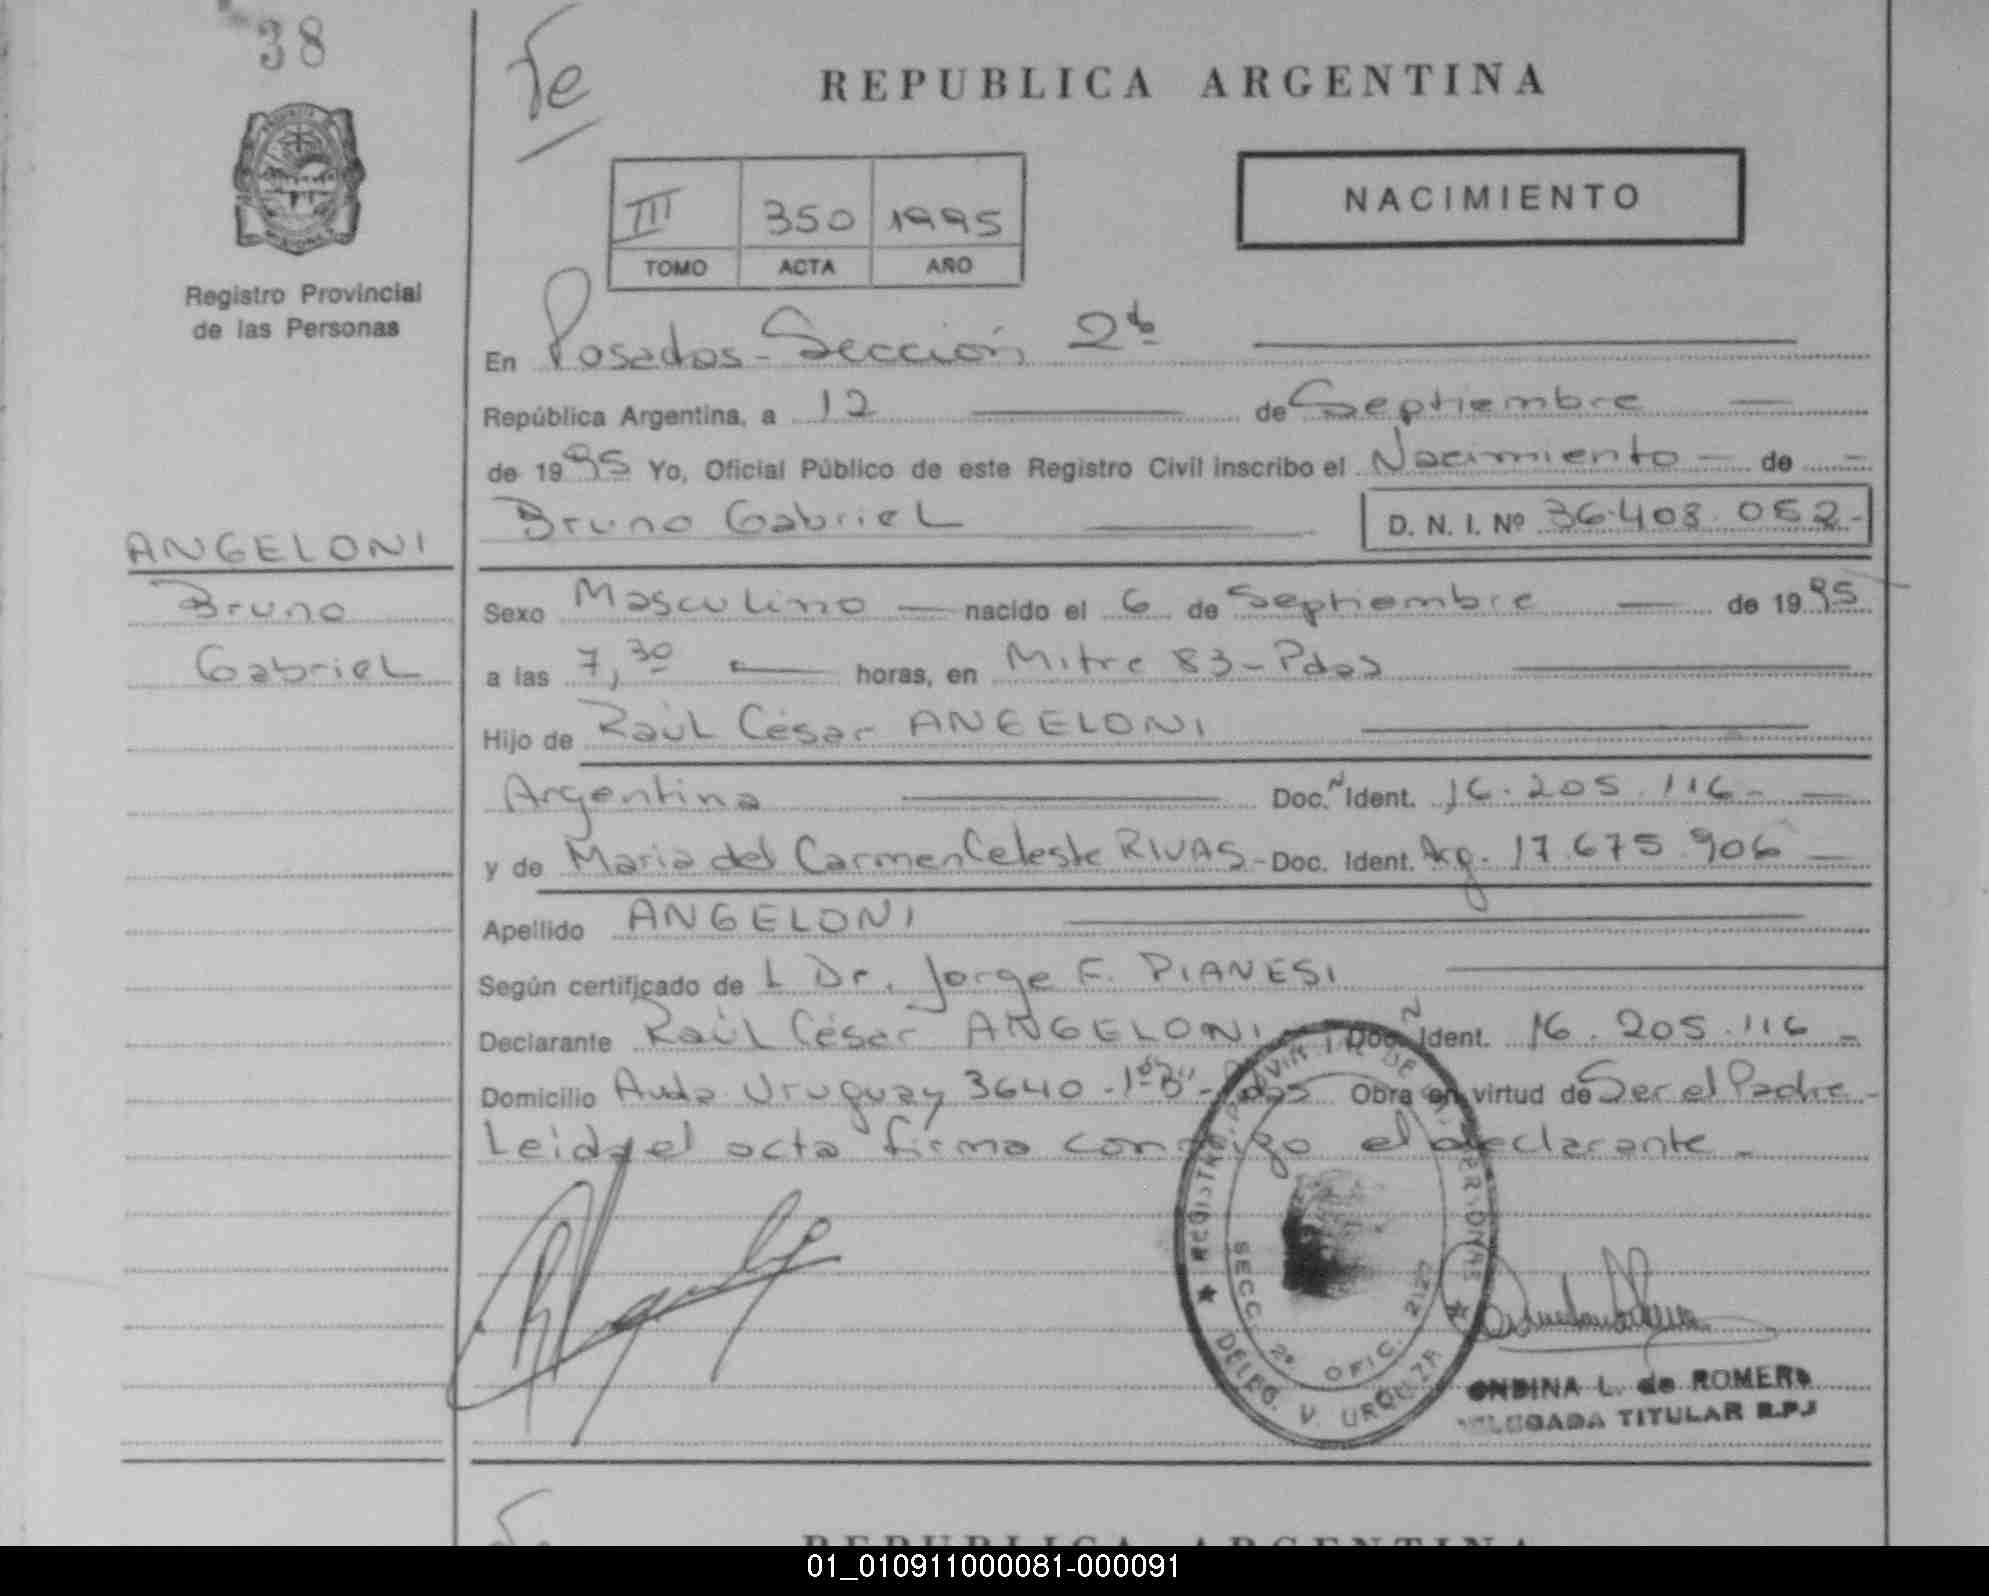 38
Fe
REPUBLICA ARGENTINA
III 350 1995
TOMO ACTA AÑO
NACIMIENTO
Registro Provincial
de las Personas
En Posadas - Sección 2da
República Argentina, a 12 de Septiembre
de 1995 Yo, Oficial Público de este Registro Civil inscribo el Nacimiento - de -
Bruno Gabriel D. N. I. Nº 36.408.052-
ANGELONI
Bruno
Gabriel
Sexo Masculino — nacido el 6 de Septiembre — de 1995
a las 7,30 horas, en Mitre 83 - Pdas
Hijo de Raúl César ANGELONI
Argentina Doc. Ident. 16.205.116 -
y de Maria del Carmen Celeste RIVAS - Doc. Ident. Arg. 17.675.906 —
Apellido ANGELONI
Según certificado de L Dr. Jorge F. PIANESI
Declarante Raúl César ANGELONI Doc. Ident. 16.205.116 -
Domicilio Avda Uruguay 3640 - 1º "B" - Pdas Obra en virtud de Ser el Padre -
Leida el acta firma conmigo el declarante -
REGISTRO PROVINCIAL DE LAS PERSONAS
SECC. 2º OFIC. 2127
DELEG. V. URQUIZA
ONDINA L. de ROMERO
DELEGADA TITULAR R.P.J
REPUBLICA ARGENTINA
01_010911000081-000091